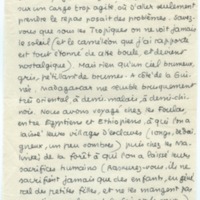 eu un cargo trop agité où d'aller seulement
prendre le repas posait des problèmes. Savez-
vous que sous les Tropiques on ne voit jamais
le soleil (et le caméléon que j'ai rapporté
est tout étonné de une boule, et devient
nostalgique) Mais rien qu'un ciel brumeux,
gris, pétillant de brumes. A côté de la Gui-
née, Madagascar me semble brusquement
très oriental, à demi-malais, à demi-chi-
nois. Nous avons voyagé chez les Foulas,
entre Egyptiens et Ethiopiens, à qui l'on a
laissé leurs villages d'esclaves (longs,
un peu sombres) puis chez les
de la forêt à qui l'on a laissé leurs
sacrifices humains (Rassurez-vous, ils ne
sacrifient jamais que des enfants, en géné-
ral des petites filles, et ne les mangent pas